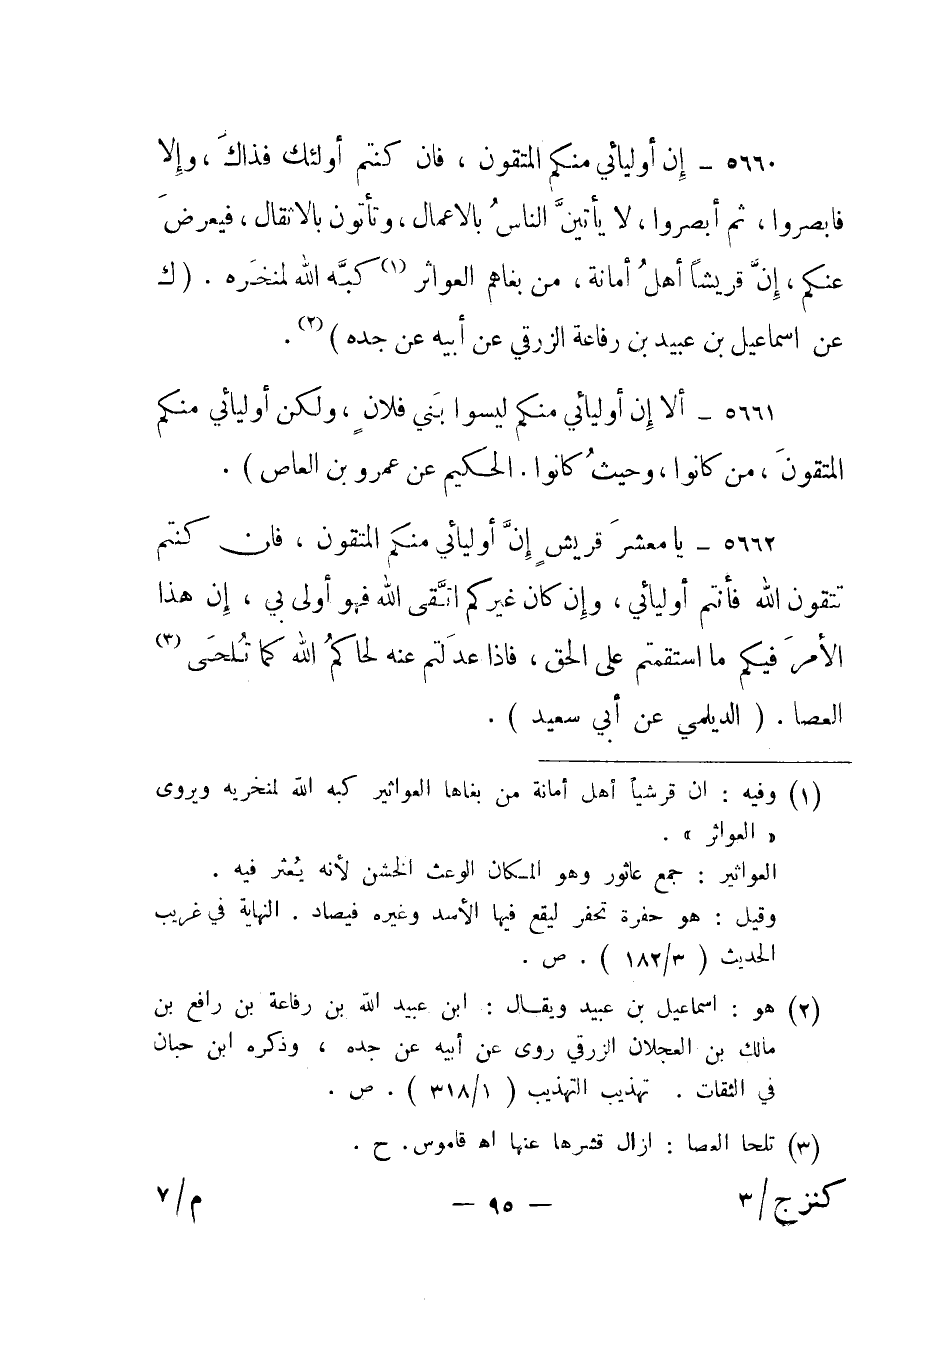 ٥٦٦٠ ـ إن أوليائي منكم المتقون ، فان كنتم أولئك فذاكَ ، وإلا
فابصروا ، ثم أبصروا ، لا يأتينَّ الناسُ بالاعمال ، وتأتون بالاثقال ، فيعرضَ
عنكم ، إنَّ قريشاً أهلُ أمانة ، من بغاهم العواثر (١) كبَّه الله لمنخَره . ( ك
عن اسماعيل بن عبيد بن رفاعة الزرقي عن أبيه عن جده ) (٢) .
٥٦٦١ ـ ألا إن أوليائي منكم ليسوا بَني فلانٍ ، ولكن أوليائي منكم
المتقونَ ، من كانوا ، وحيثُ كانوا . الحكيم عن عمرو بن العاص ) .
٥٦٦٢ ـ يا معشرَ قريشٍ إنَّ أوليائي منكم المتقون ، فان كنتم
تتقون الله فأنتم أوليائي ، وإن كان غيركم اتَّقى الله فهو أولى بي ، إن هذا
الأمرَ فيكم ما استقمتم على الحق ، فاذا عدَلتم عنه لحاكمُ الله كما تُلحَى (٣)
العصا . ( الديلمي عن أبي سعيد ) .
(١) وفيه : ان قرشياً أهل أمانة من بغاها العواثير كبه الله لمنخريه ويروى
« العواثر » .
العواثير : جمع عاثور وهو المكان الوعث الخشن لأنه يُعثر فيه .
وقيل : هو حفرة تحفر ليقع فيها الأسد وغيره فيصاد . النهاية في غريب
الحديث ( ١٨٢/٣ ) . ص .
(٢) هو : اسماعيل بن عبيد ويقال : ابن عبيد الله بن رفاعة بن رافع بن
مالك بن العجلان الزرقي روى عن أبيه عن جده ، وذكره ابن حبان
في الثقات . تهذيب التهذيب ( ٣١٨/١ ) . ص .
(٣) تلحا العصا : ازال قشرها عنها اه قاموس . ح .
كنز ج/٣ — ٩٥ — م/٧